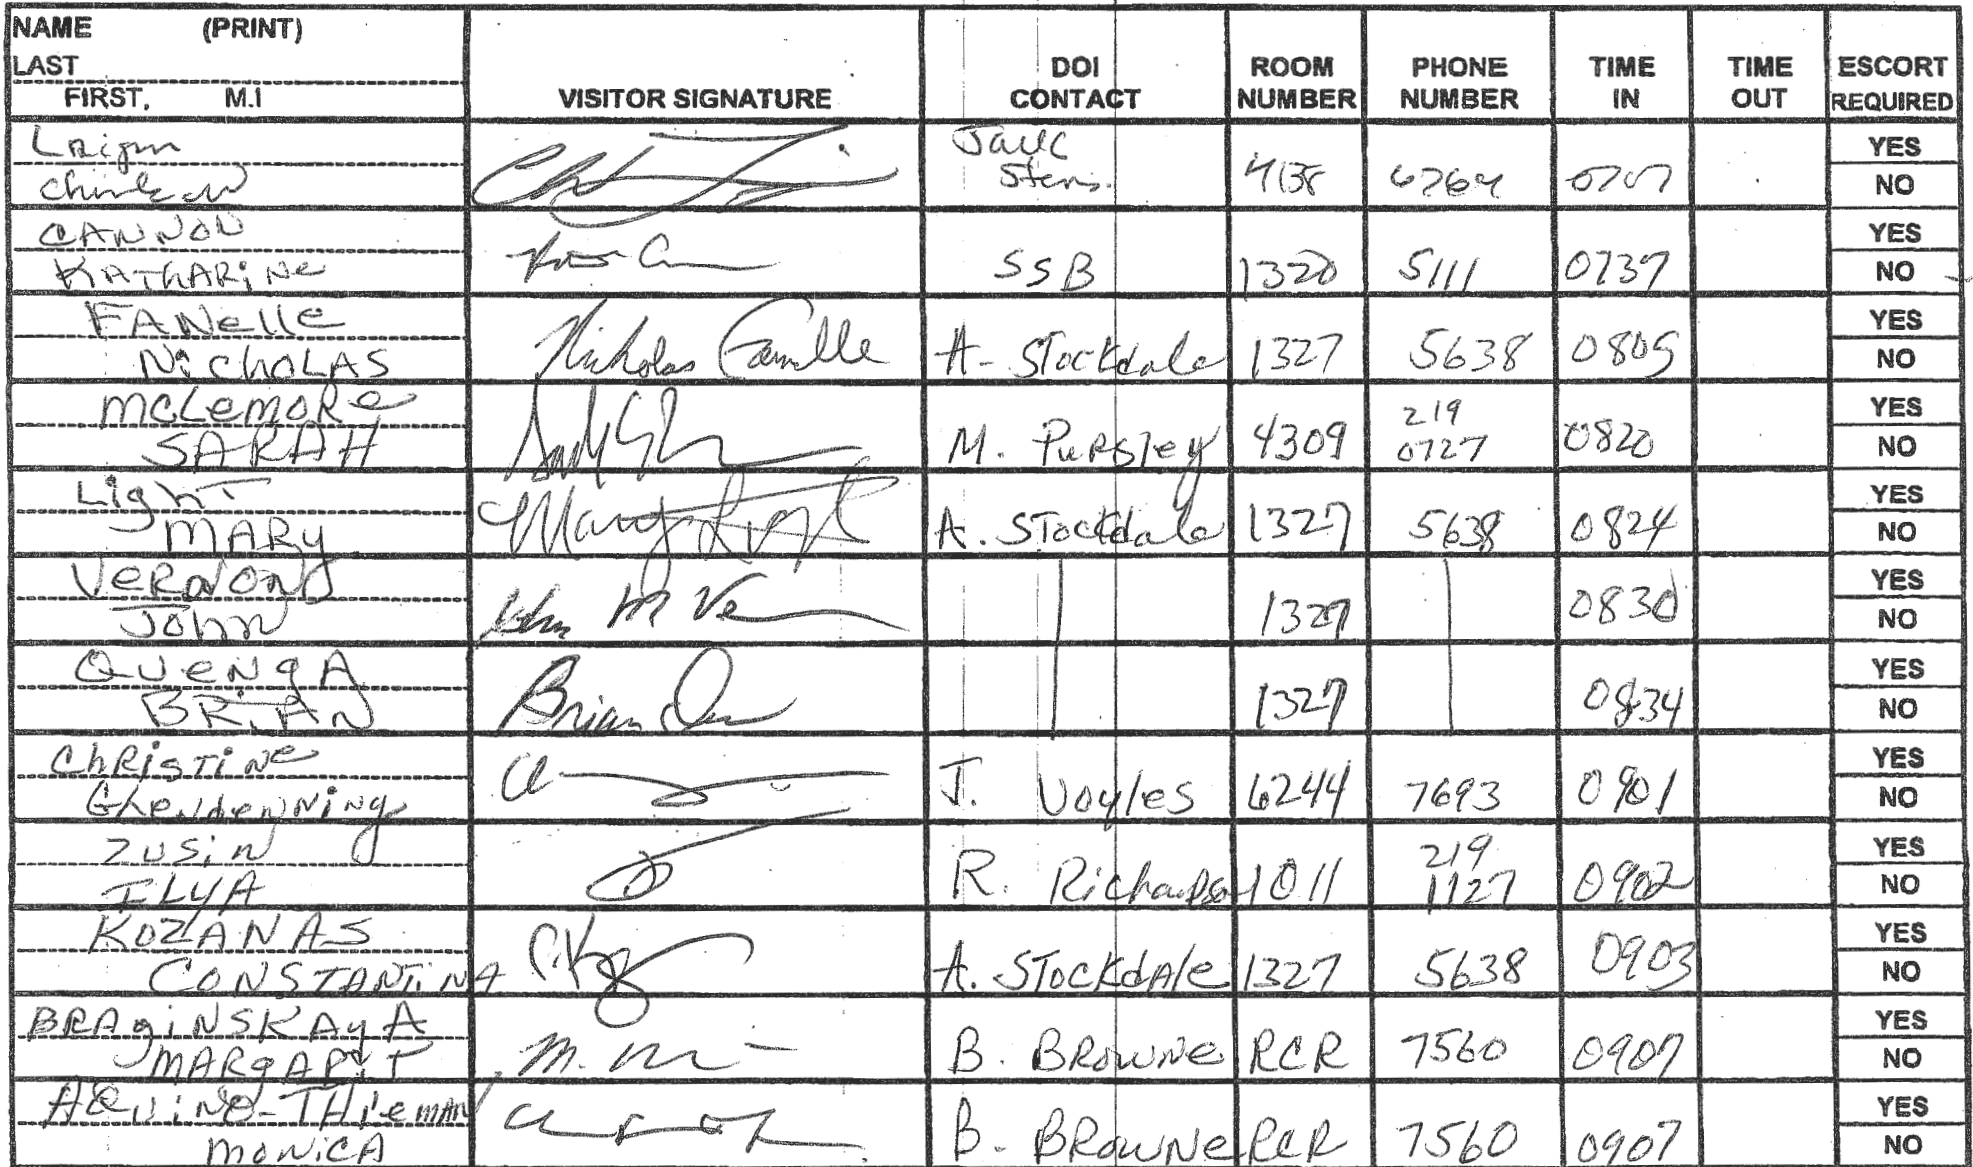 NAME (PRINT)
LAST
FIRST, M.I
VISITOR SIGNATURE
DOI
CONTACT
ROOM
NUMBER
PHONE
NUMBER
TIME
IN
TIME
OUT
ESCORT
REQUIRED
Jack
4138 6764 0707
YES
NO
CANNON
KATHARINE
SSB 1320 5111 0737
YES
NO
FANelle
NICHOLAS
Nicholas Fanelle
A. Stockdale 1327 5638 0805
YES
NO
McLemoRe
SARAH
M. Pursley 4309 219
0727 0820
YES
NO
Light
MARY
Mary Light
A. Stockdale 1327 5638 0824
YES
NO
VERNON
John
John M Ve
1327 0830
YES
NO
QuengA
BRiAN
Brian
1327 0834
YES
NO
ChRisTiNe
Glendenning
J. Voyles 6244 7693 0901
YES
NO
Zusin
ILYA
R. Richardson 1011 219
1127 0902
YES
NO
KOZANAS
CONSTANTiNA
A. STOCKdAle 1327 5638 0903
YES
NO
BRAgiNSKAyA
MARgARiT
B. BROWNE RCR 7560 0907
YES
NO
AQuiNO-THieman
MONiCA
B. BROWNE RCR 7560 0907
YES
NO